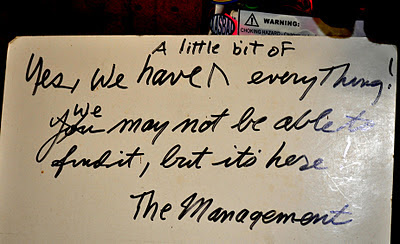 WARNING:
CHOKING HAZARD
A little bit of
Yes, We have everything!
We
you may not be able to
find it, but it's here
The Management